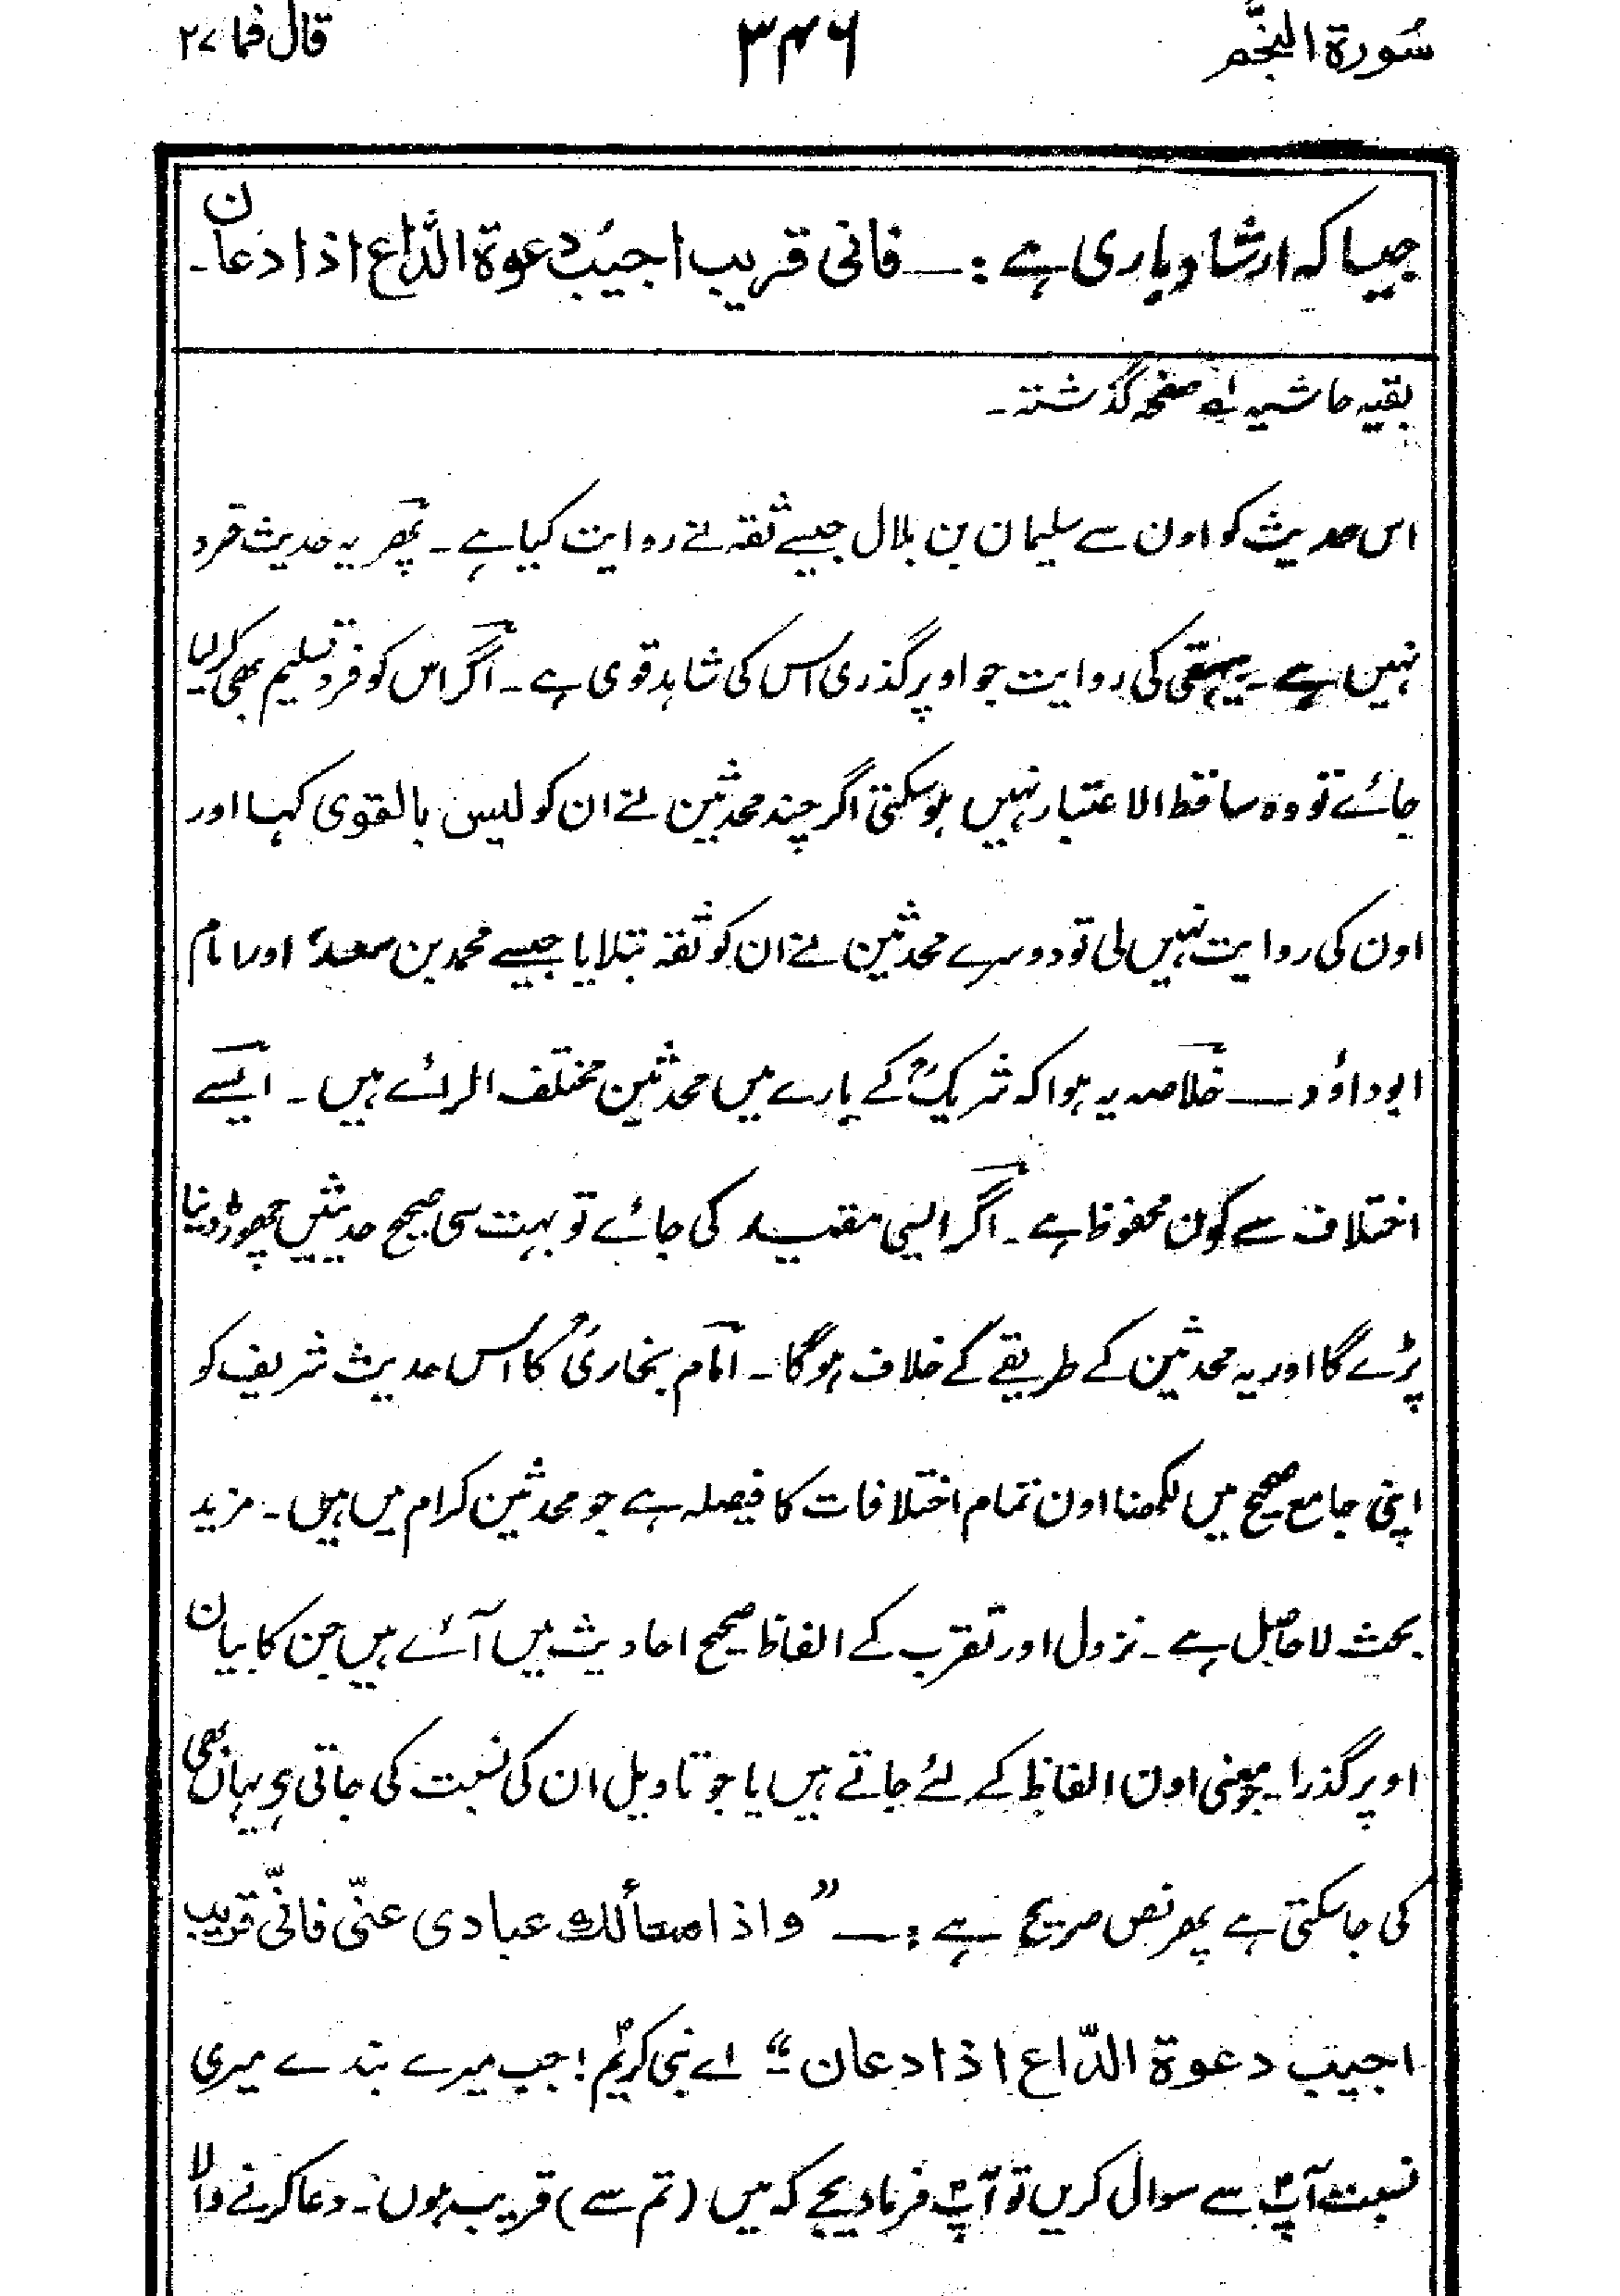 سُورة النجّم ۳۴۶ قال فما ۲۷
جیسا کہ ارشاد باری ہے :ــ فانی قریب اجیبُ دعوة الدّاع اذا دعان۔
بقیہ حاشیہ لے صفحہ گذشتہ۔
اس حدیث کو اون سے سلیمان بن بلال جیسے ثقہ نے روایت کیا ہے۔ پھر یہ حدیث فرد
نہیں ہے۔ بیہقی کی روایت جو اوپر گذری اُس کی شاہد قوی ہے۔ اگر اس کو فرد تسلیم بھی کر لیا
جائے تو وہ ساقط الاعتبار نہیں ہو سکتی اگر چند محدثین نے ان کو لیس بالقوی کہا اور
اون کی روایت نہیں لی تو دوسرے محدثین نے ان کو ثقہ بتلایا جیسے محمد بن سعدؒ اور امام
ابوداؤد ــ خلاصہ یہ ہوا کہ شریکؒ کے بارے میں محدثین مختلف الرائے ہیں۔ ایسے
اختلاف سے کون محفوظ ہے۔ اگر ایسی مقید کی جائے تو بہت سی صحیح حدیثیں چھوڑ دینا
پڑے گا اور یہ محدثین کے طریقے کے خلاف ہوگا۔ امام بخاریؒ کا اُس حدیث شریف کو
اپنی جامع صحیح میں لکھنا اون تمام اختلافات کا فیصلہ ہے جو محدثین کرام میں ہیں۔ مزید
بحث لاحاصل ہے۔ نزول اور تقرب کے الفاظ صحیح احادیث میں آئے ہیں جن کا بیان
اوپر گذرا۔ جو معنی اون الفاظ کے لئے جاتے ہیں یا جو تاویل ان کی نسبت کی جاتی ہے یہاں بھی
کی جا سکتی ہے پھر نص صریح ہے :ــ ”واذا سألك عبادی عنّی فانّی قریب
اجیب دعوة الدّاع اذا دعان“۔ اے نبی کریمؐ! جب میرے بندے میری
نسبت آپؐ سے سوال کریں تو آپؐ فرما دیجے کہ میں (تم سے) قریب ہوں۔ دعا کرنے والا